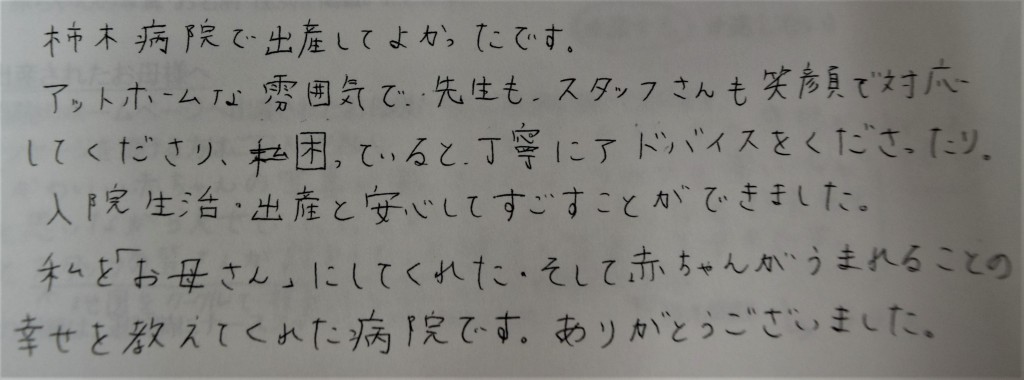 柿木病院で出産してよかったです。
アットホームな雰囲気で、先生も、スタッフさんも笑顔で対応
してくださり、困っていると、丁寧にアドバイスをくださったり。
入院生活・出産と安心してすごすことができました。
私を「お母さん」にしてくれた・そして赤ちゃんがうまれることの
幸せを教えてくれた病院です。ありがとうございました。